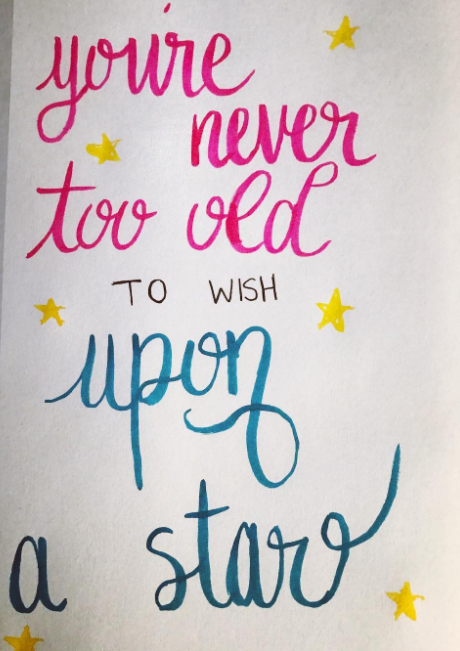 you're
never
too old
TO WISH
upon
a star